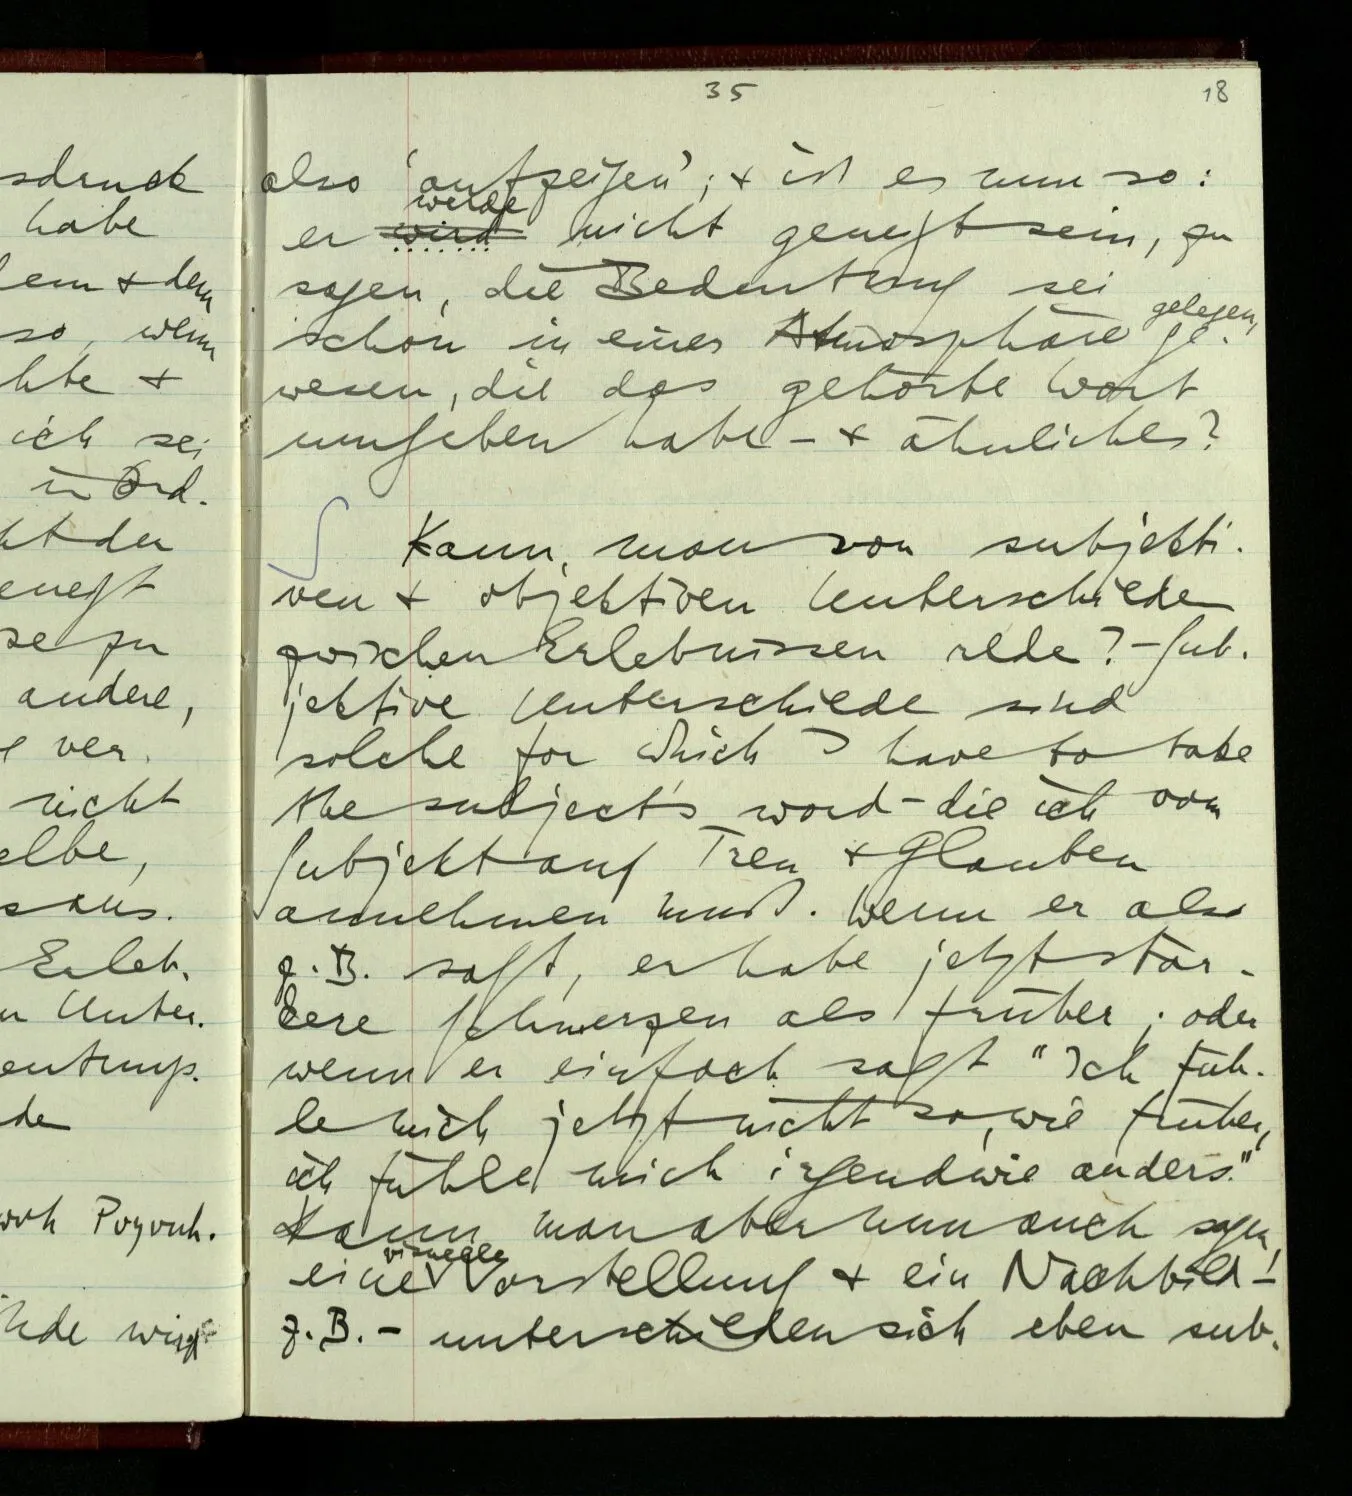 35
18
sdruck
habe
lem + dem
so, wenn
hte +
ich sei
in Ord-
ht der
eneigt
se zu
andere,
ver-
nicht
elbe,
saus.
Erleb-
n Unter-
eutungs-
de
Psych-
nde wird
also 'aufzeigen'; + ist es nun so:
werde
er wird nicht geneigt sein, zu
sagen, die Bedeutung sei
gelegen,
schon in einer Atmosphäre ge-
wesen, die das gehörte Wort
umgeben habe – + ähnliches?
S Kann man von subjekti-
ven + objektiven Unterschieden
zwischen Erlebnissen rede? – Sub-
jektive Unterschiede sind
solche for which I have to take
the subject's word – die ich vom
Subjekt auf Treu + Glauben
annehmen muß. Wenn er also
z.B. sagt, er habe jetzt stär-
kere Schmerzen als früher; oder
wenn er einfach sagt "Ich füh-
le mich jetzt nicht so, wie früher,
ich fühle mich irgendwie anders."
Kann man aber nun auch sagen,
visuelle
eine Vorstellung + ein Nachbild –
z.B. – unterschieden sich eben sub-